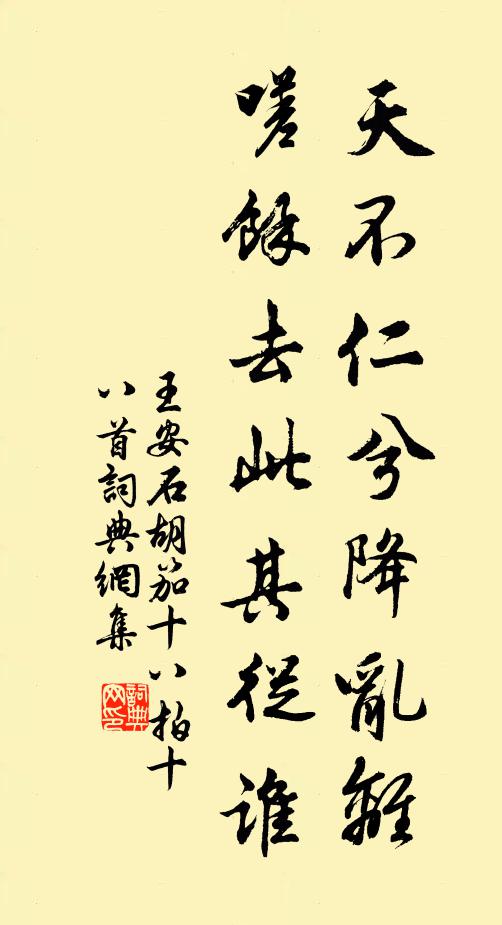 天不仁兮降亂離
嗟餘去此其從誰
王安石胡笳十八拍十
八首詞典網集
詞典
网印